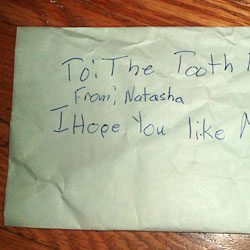 To: The Tooth
From; Natasha
I Hope You like